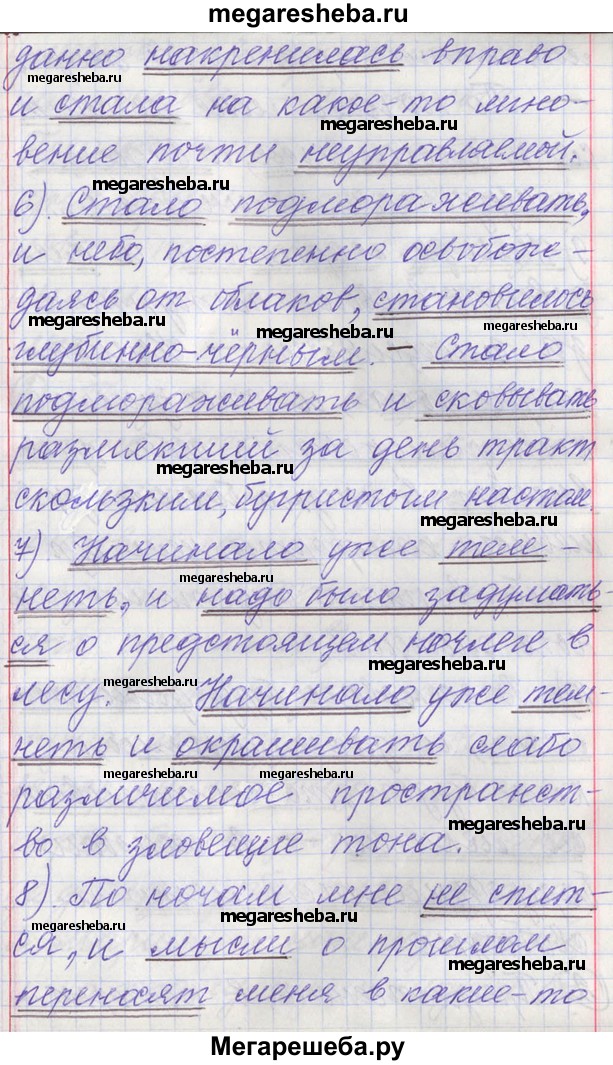 megaresheba.ru
данно накренилась вправо
megaresheba.ru
и стала на какое-то мно-
megaresheba.ru
вение почти неуправляемой.
megaresheba.ru
6) Стало подмораживать,
и небо, постепенно освобож-
даясь от облаков, становилось
megaresheba.ru megaresheba.ru megaresheba.ru
глубинно-чёрным. — Стало
подмораживать и сковывать
размякший за день тракт
megaresheba.ru
скользким, бугристым настом.
megaresheba.ru
7) Начинало уже тем-
megaresheba.ru
неть, и надо было задумать-
ся о предстоящем ночлеге в
megaresheba.ru
лесу. — Начинало уже тем-
megaresheba.ru megaresheba.ru
неть и окрашивать слабо
megaresheba.ru megaresheba.ru
различимое пространст-
megaresheba.ru
во в зловещие тона.
8) По ночам мне не спит-
megaresheba.ru megaresheba.ru
ся, и мысли о прошлом
megaresheba.ru
переносят меня в какие-то
Мегарешеба.ру